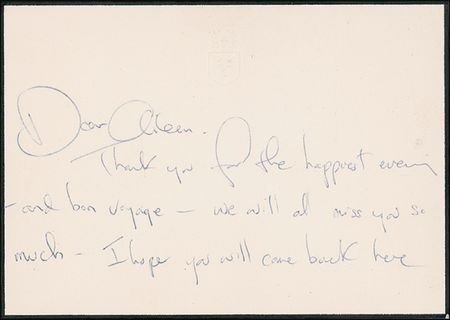 Dear Aileen.
Thank you for the happiest evening
- and bon voyage - we will all miss you so
much - I hope you will come back here